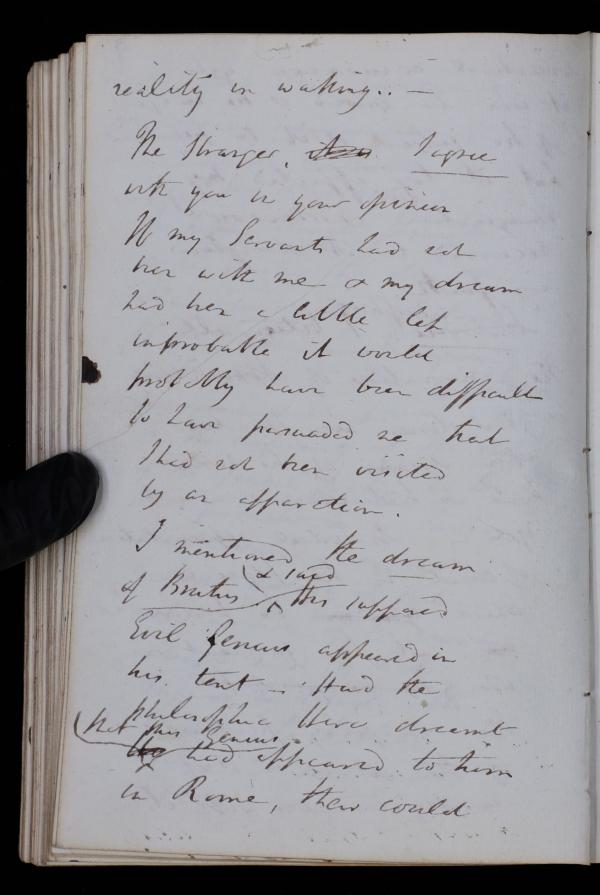 reality in waking.. —
The Stranger, I agree
with you in your opinion
If my Servants had not
been with me & my dream
had been a little less
improbable it would
probably have been difficult
to have persuaded me that
I had not been visited
by an apparition.
I mentioned the dream
of Brutus & said this supposed
Evil Genius appeared in
his tent – Had the
philosophic Hero dreamt
that his Genius
had appeared to him
in Rome, there could